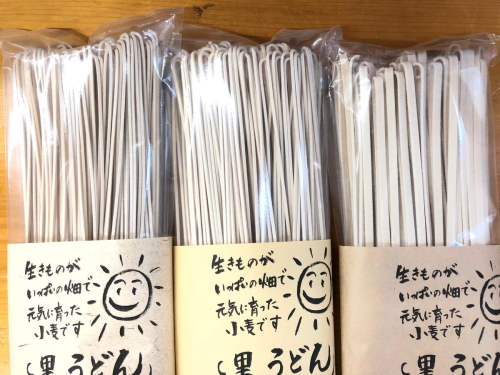 生きものが
いっぱいの畑で
元気に育った
小麦です
黒うどん
生きものが
いっぱいの畑で
元気に育った
小麦です
黒うどん
生きものが
いっぱいの畑で
元気に育った
小麦です
黒うどん